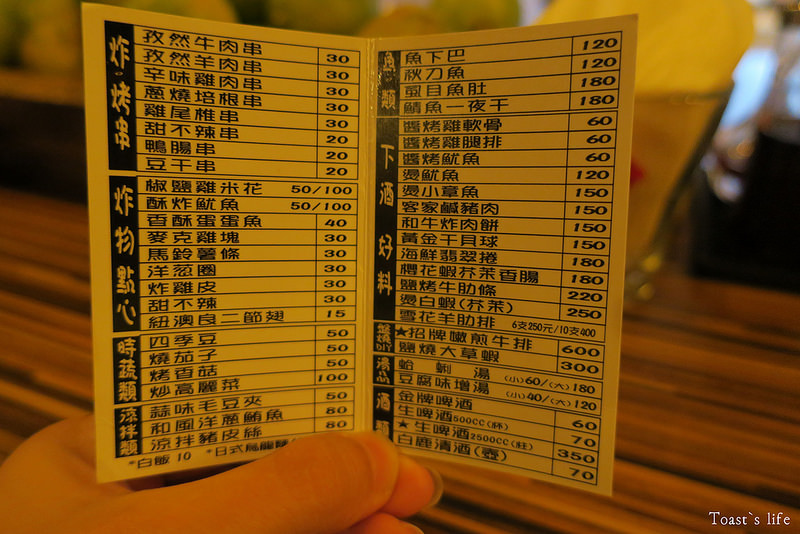 炸·烤串
孜然牛肉串 30
孜然羊肉串 30
辛味雞肉串 30
蔥燒培根串 30
雞尾椎串 20
甜不辣串 20
鴨腸串 20
豆干串 20
炸物 點心
椒鹽雞米花 50/100
酥炸魷魚 50/100
香酥蛋蛋魚 40
麥克雞塊 30
馬鈴薯條 30
洋蔥圈 30
炸雞皮 30
甜不辣 30
紐澳良二節翅 15
時蔬類
四季豆 50
燒茄子 50
烤香菇 50
炒高麗菜 100
涼拌類
蒜味毛豆夾 50
和風洋蔥鮪魚 80
涼拌豬皮絲 80
*白飯 10 *日式烏龍麵
魚類
魚下巴 120
秋刀魚 120
虱目魚肚 180
鯖魚一夜干 180
下酒 好料
醬烤雞軟骨 60
醬烤雞腿排 60
醬烤魷魚 60
燙魷魚 120
燙小章魚 150
客家鹹豬肉 150
和牛炸肉餅 150
黃金干貝球 150
海鮮翡翠捲 180
櫻花蝦芥茉香腸 180
鹽烤牛肋條 220
燙白蝦(芥茉) 250
雪花羊肋排 6支250元/10支400
DIY
★招牌嫩煎牛排 600
鹽燒大草蝦 300
湯品
蛤蜊湯 (小)60/(大)180
豆腐味增湯 (小)40/(大)120
酒類
金牌啤酒 60
生啤酒500CC(杯) 70
★生啤酒2500CC(柱) 350
白鹿清酒(壺) 70
Toast`s life